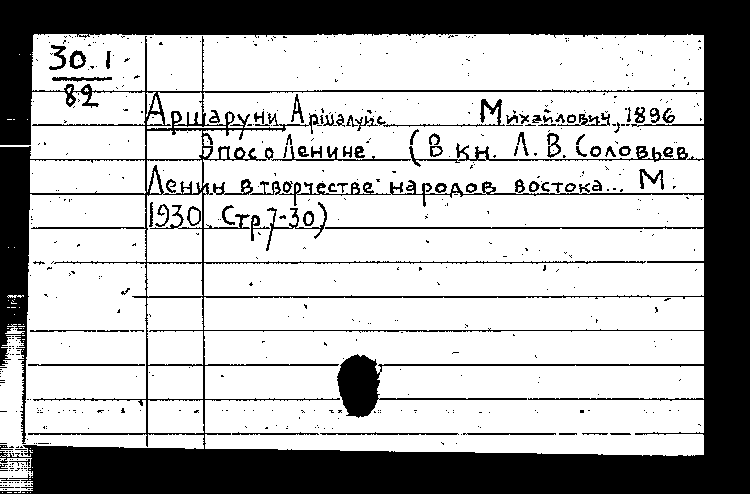 30.1
82
Аршаруни, Аршалуйс Михайлович, 1896
Эпос о Ленине. (В кн. Л. В. Соловьев.
Ленин в творчестве народов востока... М.
1930 Стр 7-30)